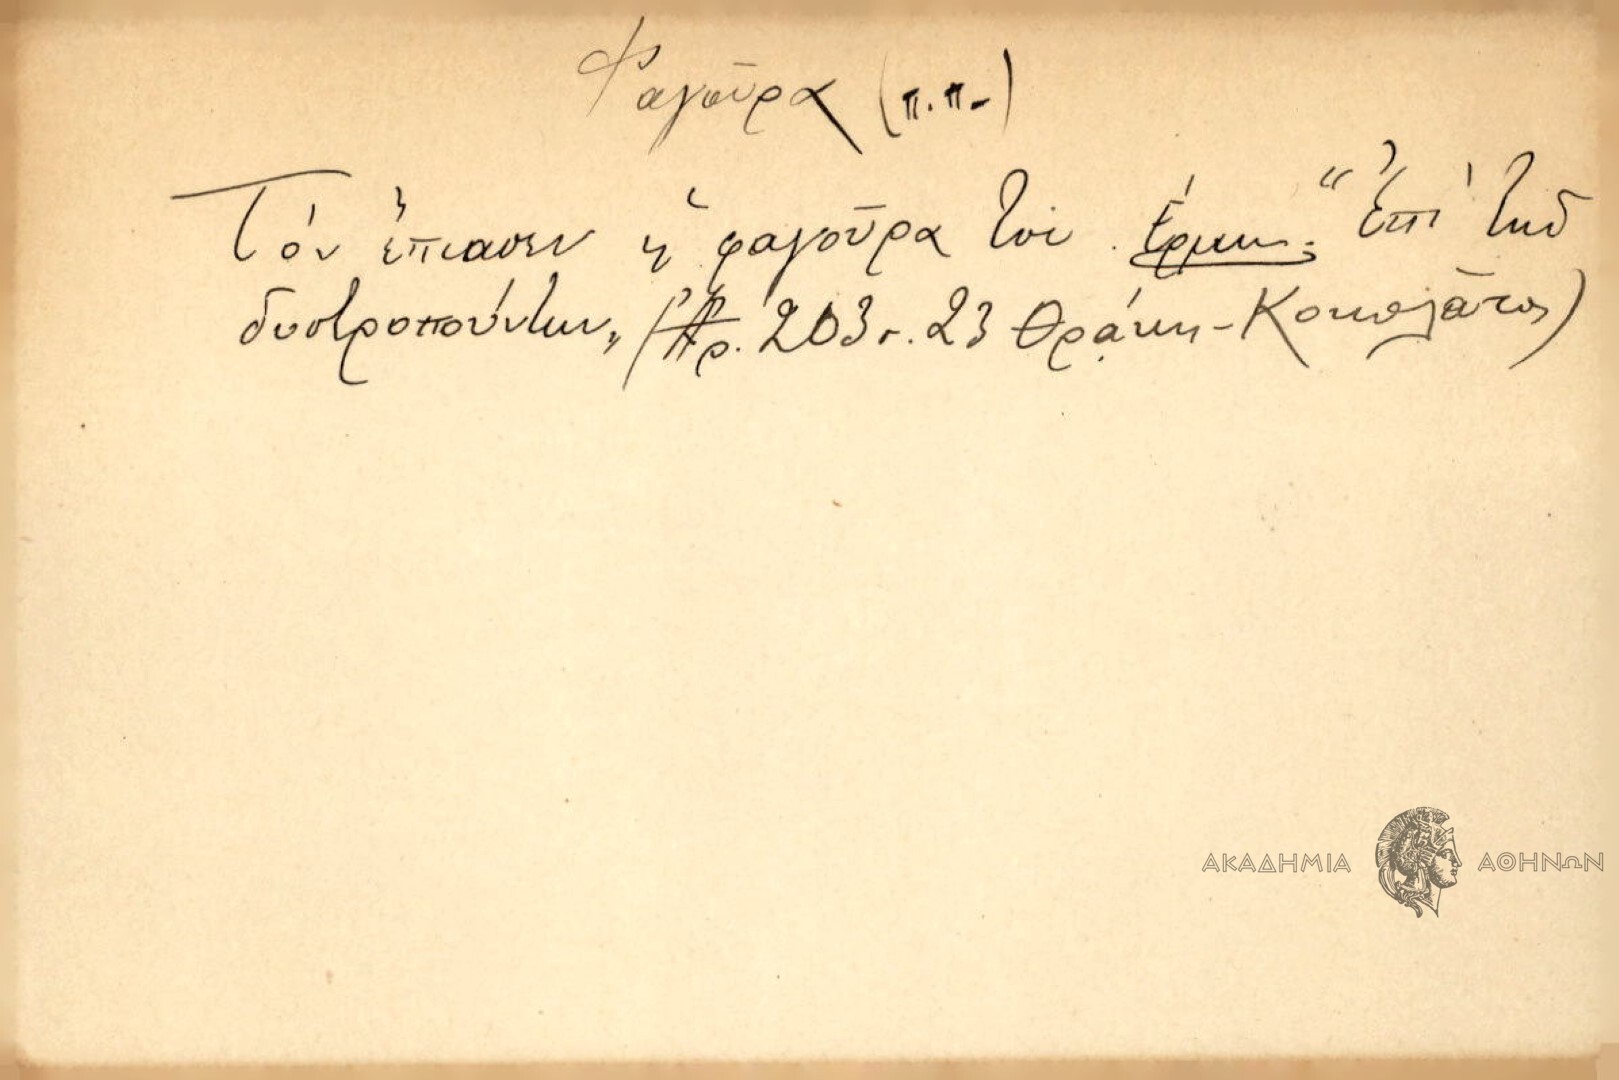 Φαγοῦρα (π.π.)
Τόν ἔπιασεν ἡ φαγοῦρα του. Ἑρμην: "Ἐπί τῶν
δυστροπούντων„ (Ἀρ. 203 σ. 23 Θράκη -
ΑΚΑΔΗΜΙΑ ΑΘΗΝΩΝ